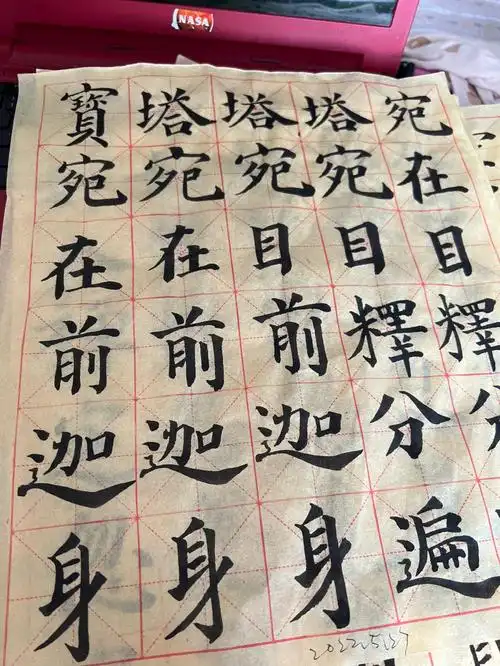 NASA
寶塔塔塔宛
宛宛宛宛在
在在目目目
前前前釋釋
迦迦迦分分
身身身遍
2022.5.27